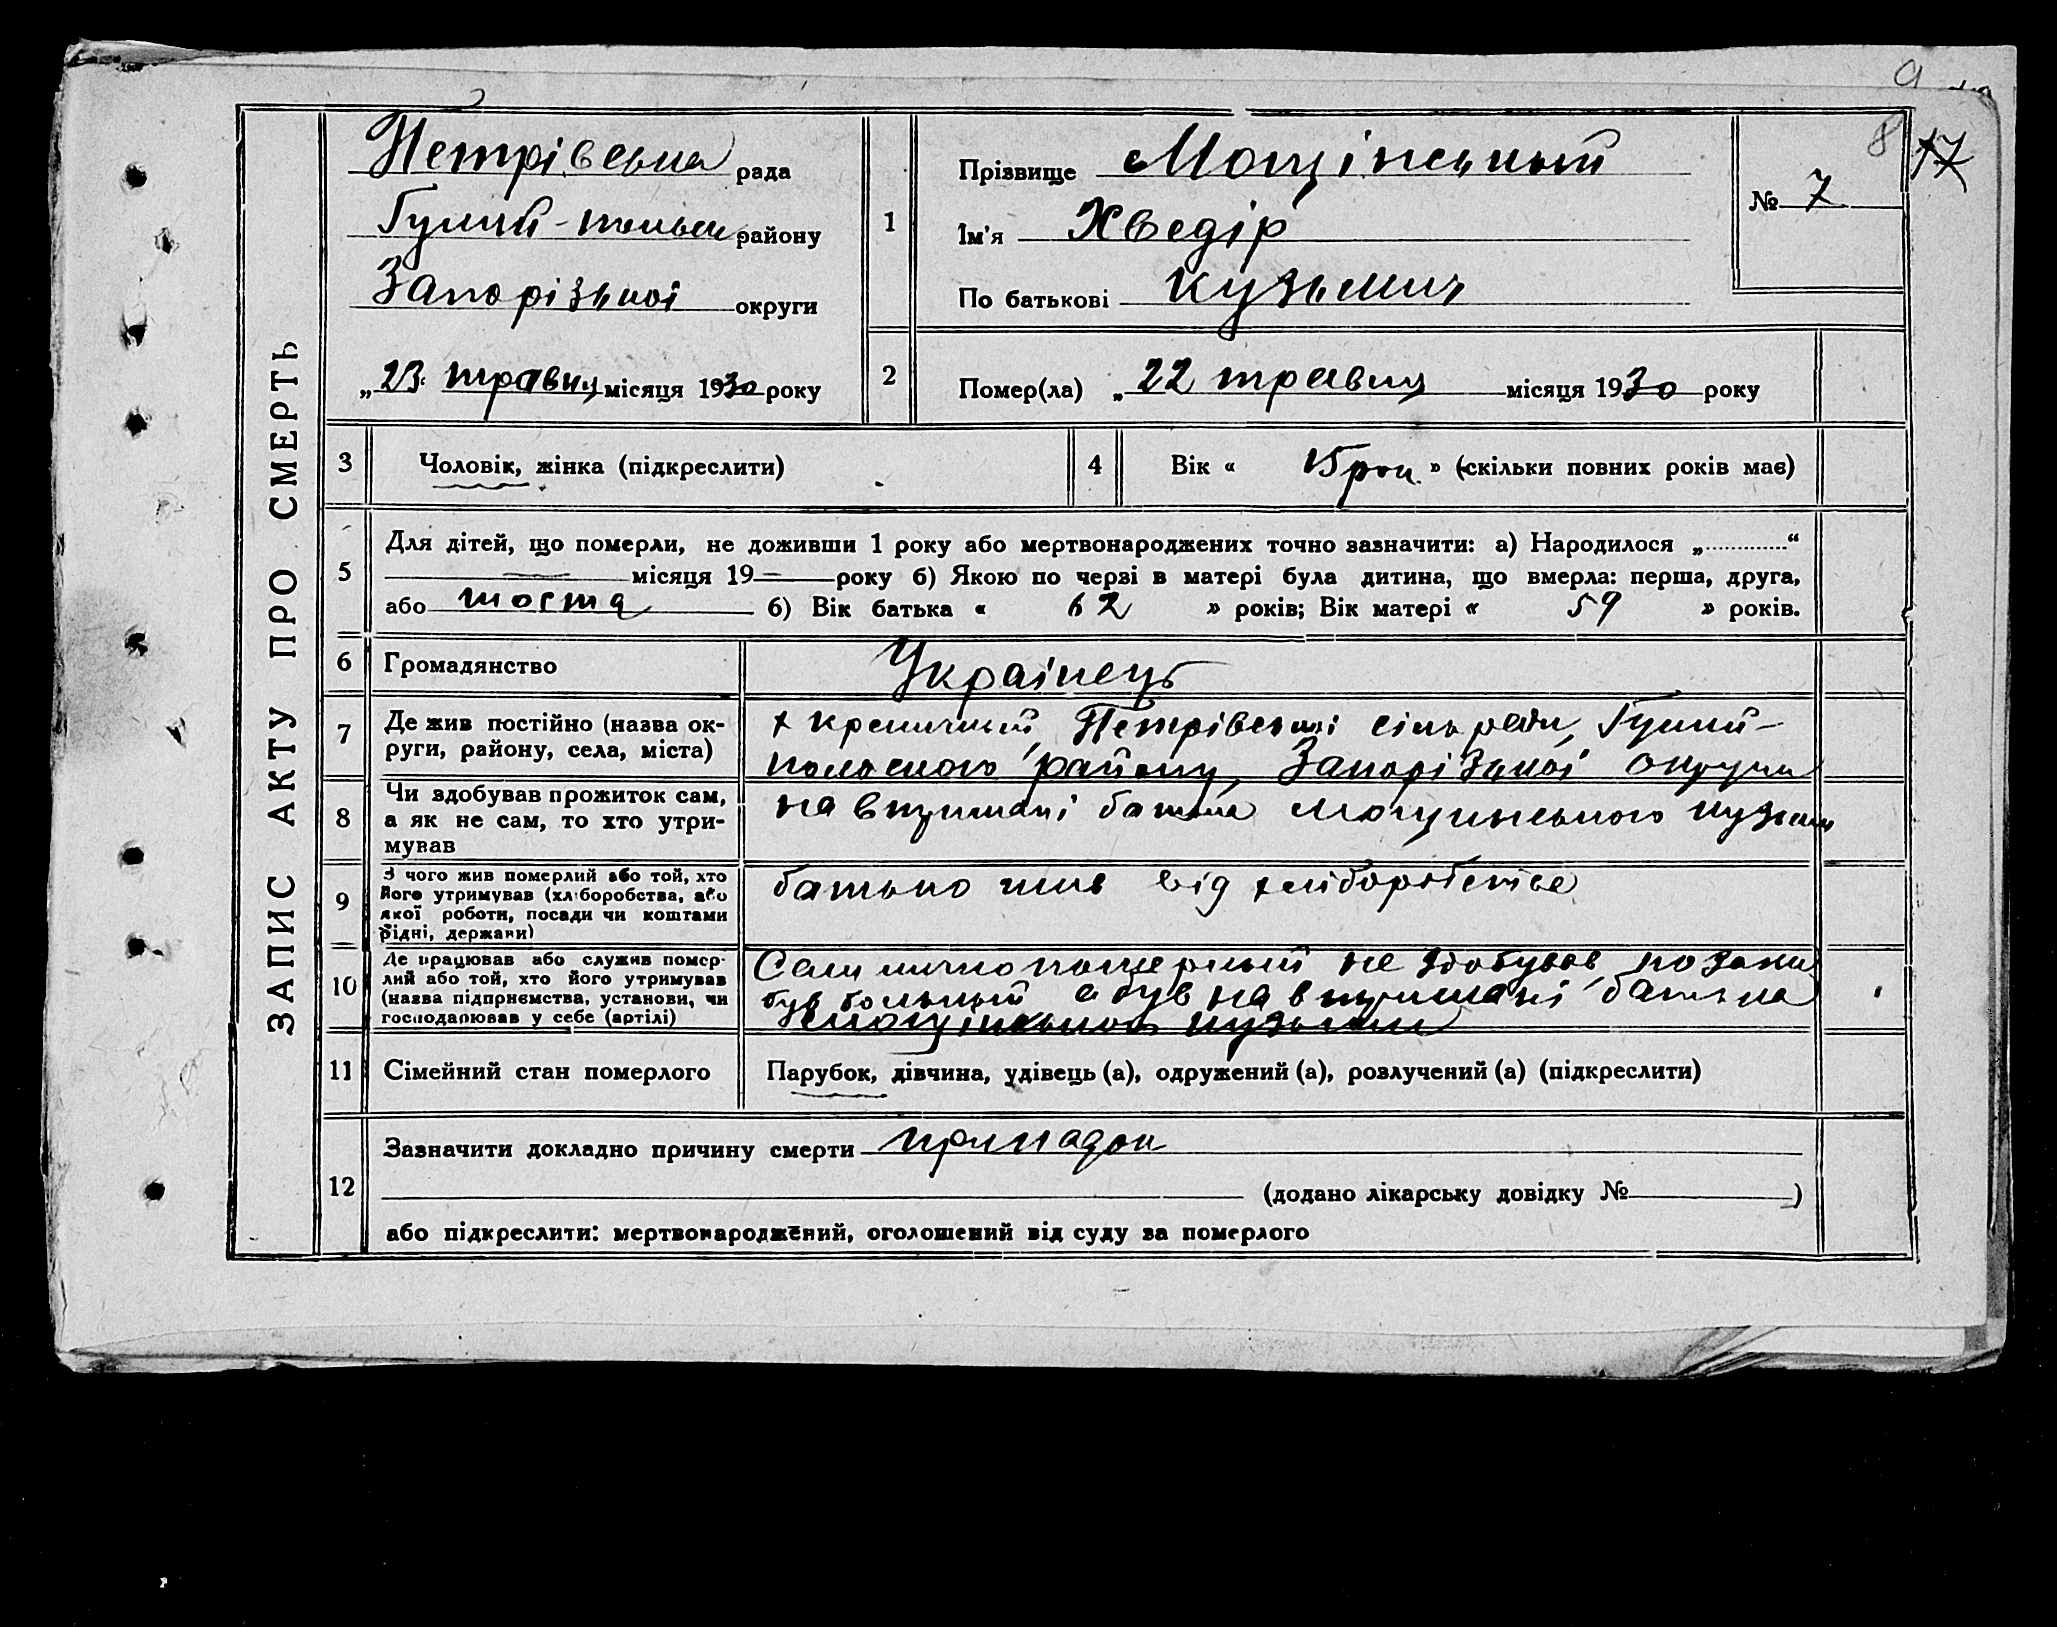 9
8 17
ЗАПИС АКТУ ПРО СМЕРТЬ
Петрівська рада
району
Запорізької округи
„23 травня місяця 1930 року
1
Прізвище Мощінський
Ім'я Хведір
По батькові Кузьмич
№ 7
2
Помер(ла) „22 травня місяця 1930 року
3 Чоловік, жінка (підкреслити)
4 Вік « 15 рок. » (скільки повних років має)
5
Для дітей, що померли, не доживши 1 року або мертвонароджених точно зазначити: а) Народилося „............“
місяця 19 року б) Якою по черзі в матері була дитина, що вмерла: перша, друга,
або шоста б) Вік батька « 62 » років; Вік матері « 59 » років.
6 Громадянство Українець
7 Де жив постійно (назва округи, району, села, міста)
Петрівської сільради, Гуляй-
польського району, Запорізької округи
8 Чи здобував прожиток сам,
а як не сам, то хто утри-
мував
на втриманні батька Мощинського Кузьми
9 З чого жив померлий або той, хто
його утримував (хліборобства, або
якої роботи, посади чи коштами
рідні, держави)
батько жив від хліборобства
10 Де працював або служив помер-
лий або той, хто його утримував
(назва підприємства, установи, чи
господарював у себе (артілі)
Сам лично помержий не здобував
був больний а був на втриманні батька
Мощінського Кузьми
11 Сімейний стан померлого Парубок, дівчина, удівець (а), одружений (а), розлучений (а) (підкреслити)
12
Зазначити докладно причину смерти припадок
(додано лікарську довідку № )
або підкреслити: мертвонароджений, оголошений від суду за померлого